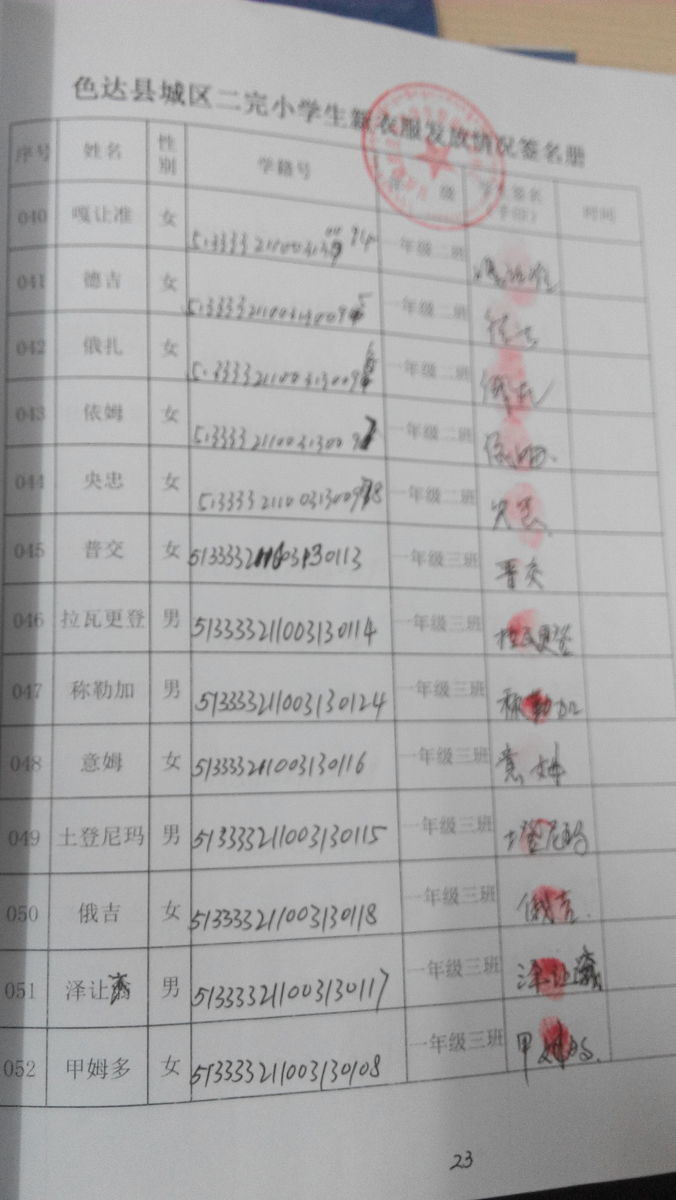 色达县城区二完小学生新衣服发放情况签名册
序号 姓名 性别 学籍号 年 级 学生签名（手印） 时间
040 嘎让准 女 一年级二班 嘎让准
041 德吉 女 513333211003130095 一年级二班 德吉
042 俄扎 女 513333211003130096 一年级二班 俄扎
043 依姆 女 513333211003130097 一年级二班 依姆
044 央忠 女 513333211003130098 一年级二班 央忠
045 普交 女 513333211003130113 一年级三班 普交
046 拉瓦更登 男 513333211003130114 一年级三班 拉瓦更登
047 称勒加 男 513333211003130124 一年级三班 称勒加
048 意姆 女 513333211003130116 一年级三班 意姆
049 土登尼玛 男 513333211003130115 一年级三班 土登尼玛
050 俄吉 女 513333211003130118 一年级三班 俄吉
051 泽让 男 513333211003130117 一年级三班 泽让
052 甲姆多 女 513333211003130108 一年级三班 甲姆多
23